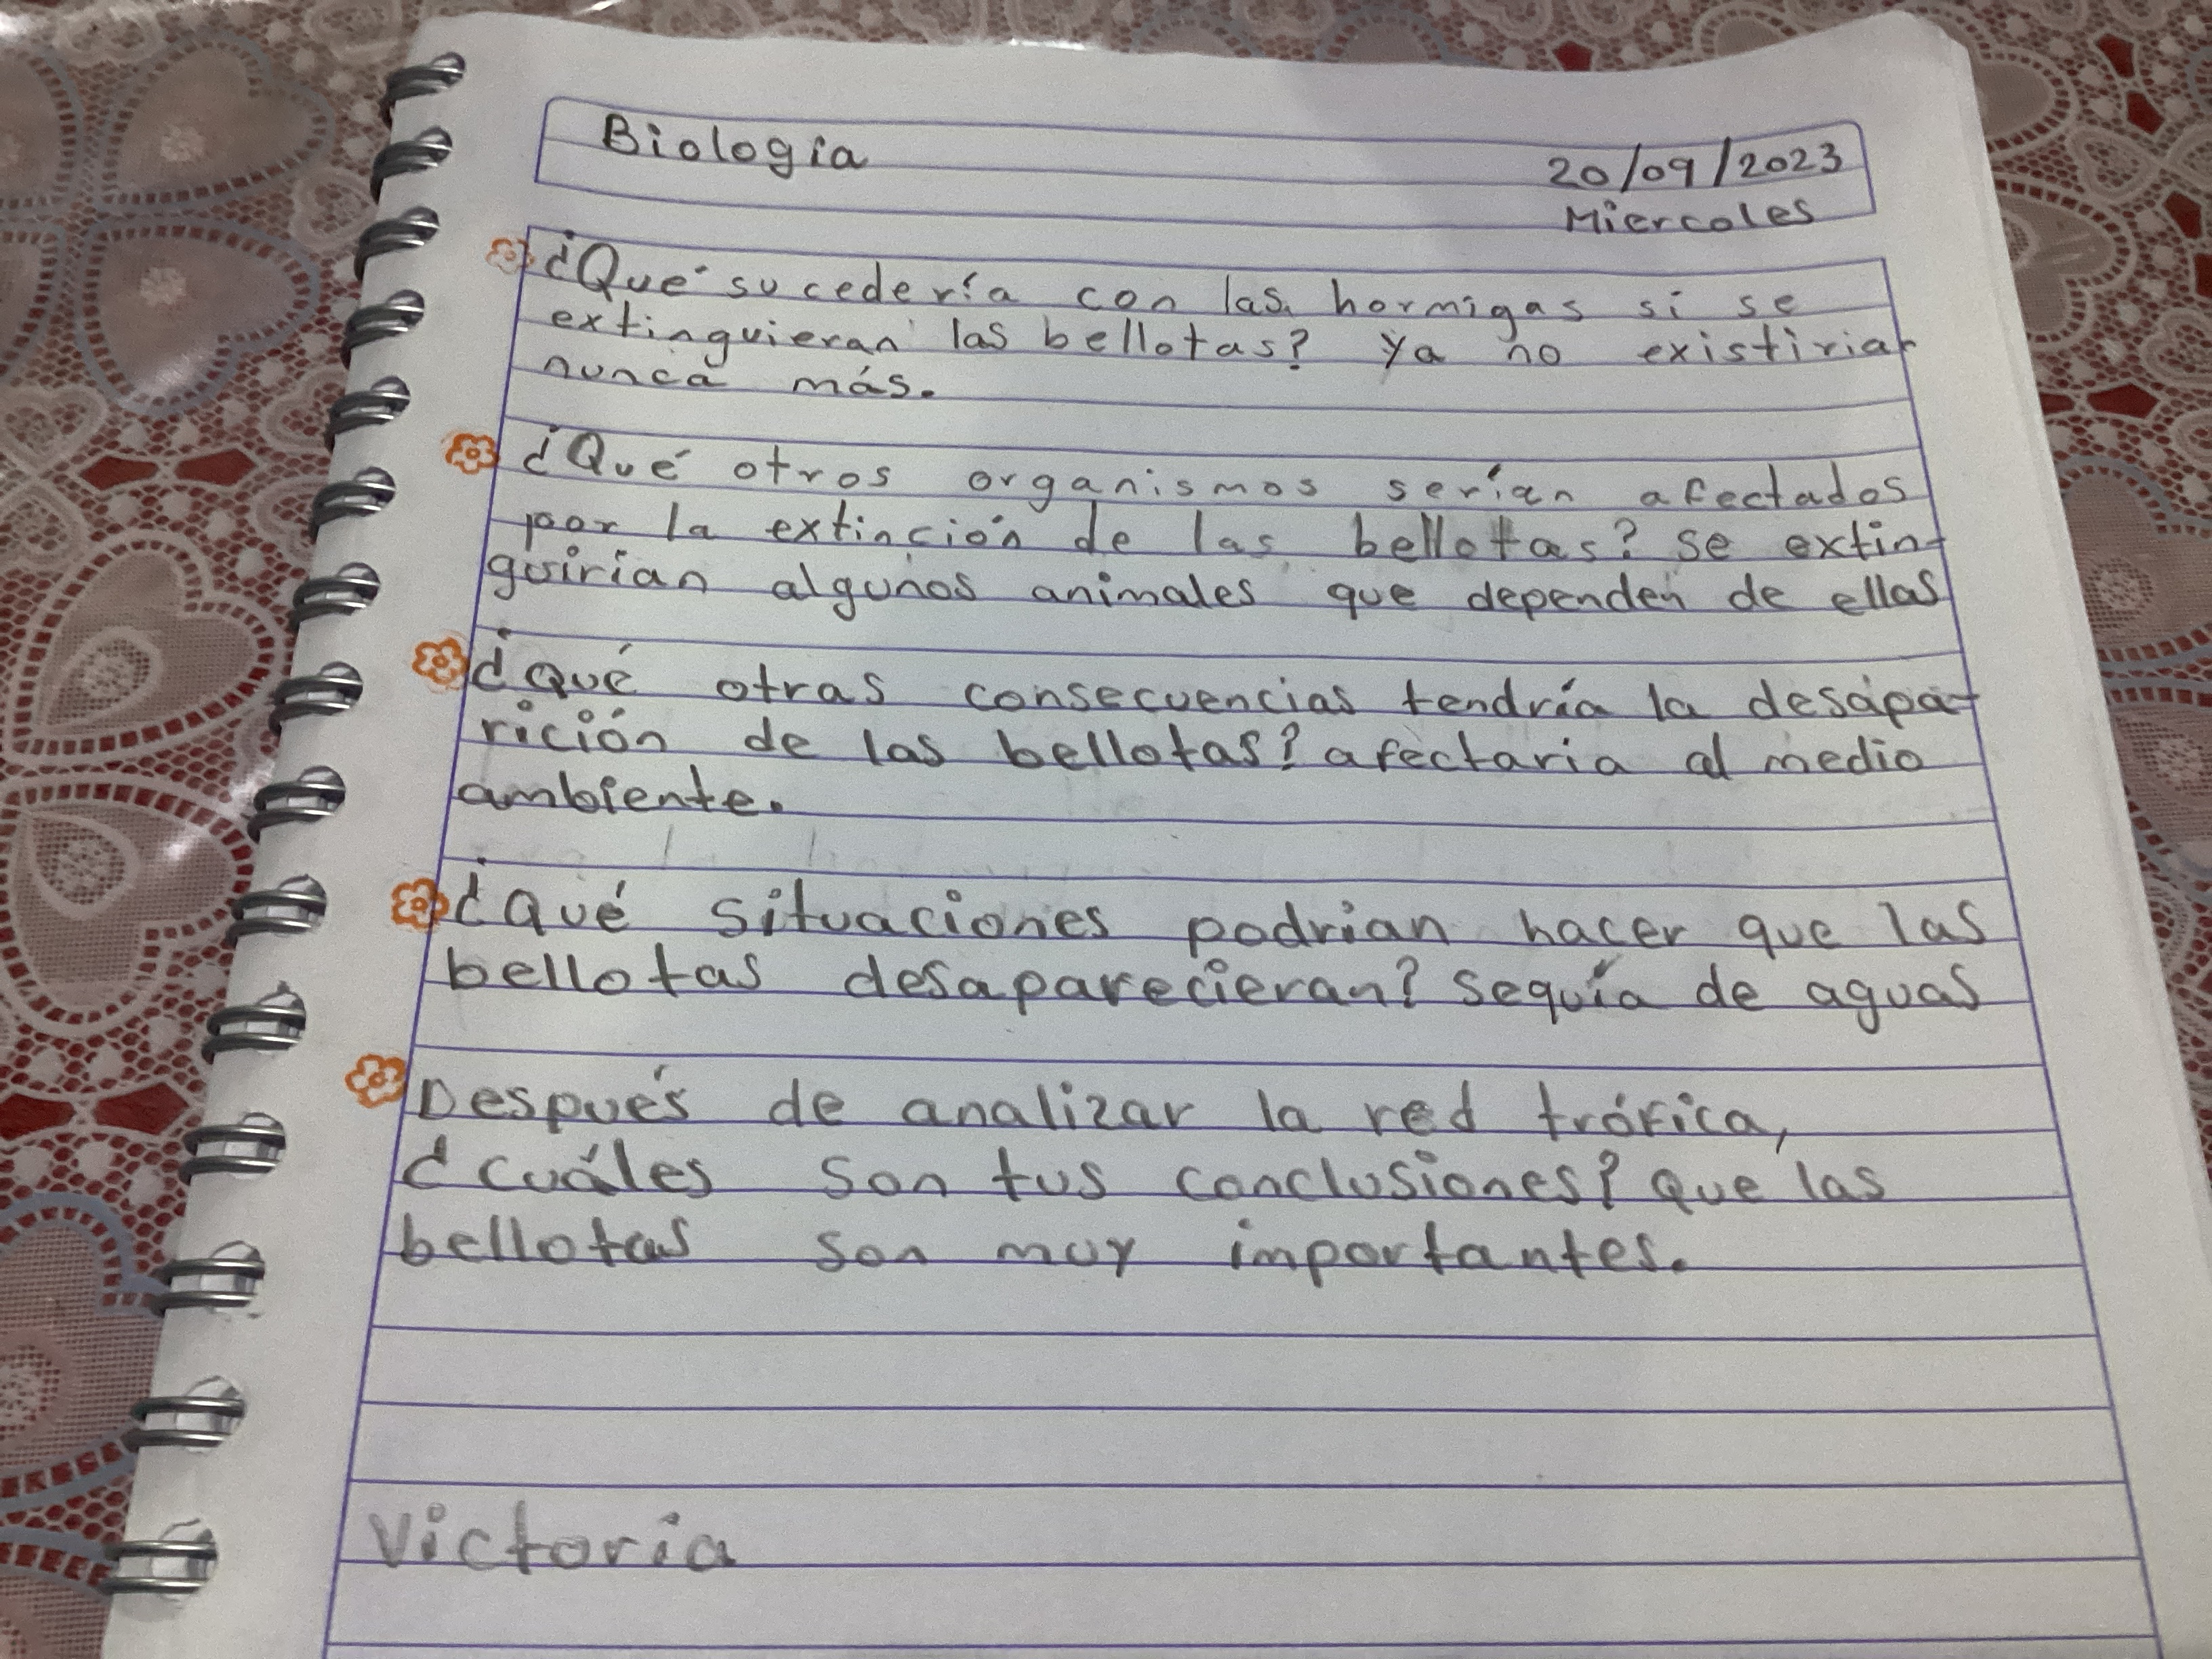 Biología
20/09/2023
Miercoles
¿Qué sucedería con las hormigas si se
extinguieran las bellotas? Ya no existirian
nunca más.
¿Qué otros organismos serían afectados
por la extinción de las bellotas? se extin-
guirian algunos animales que dependen de ellas
¿Qué otras consecuencias tendría la desapa-
rición de las bellotas? afectaria al medio
ambiente.
¿Qué situaciones podrian hacer que las
bellotas desaparecieran? Sequía de aguas
Después de analizar la red trófica,
¿cuáles son tus conclusiones? Que las
bellotas son muy importantes.
Victoria